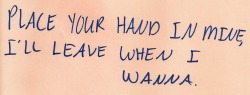 PLACE YOUR HAND IN MINE,
I'LL LEAVE WHEN I
WANNA.